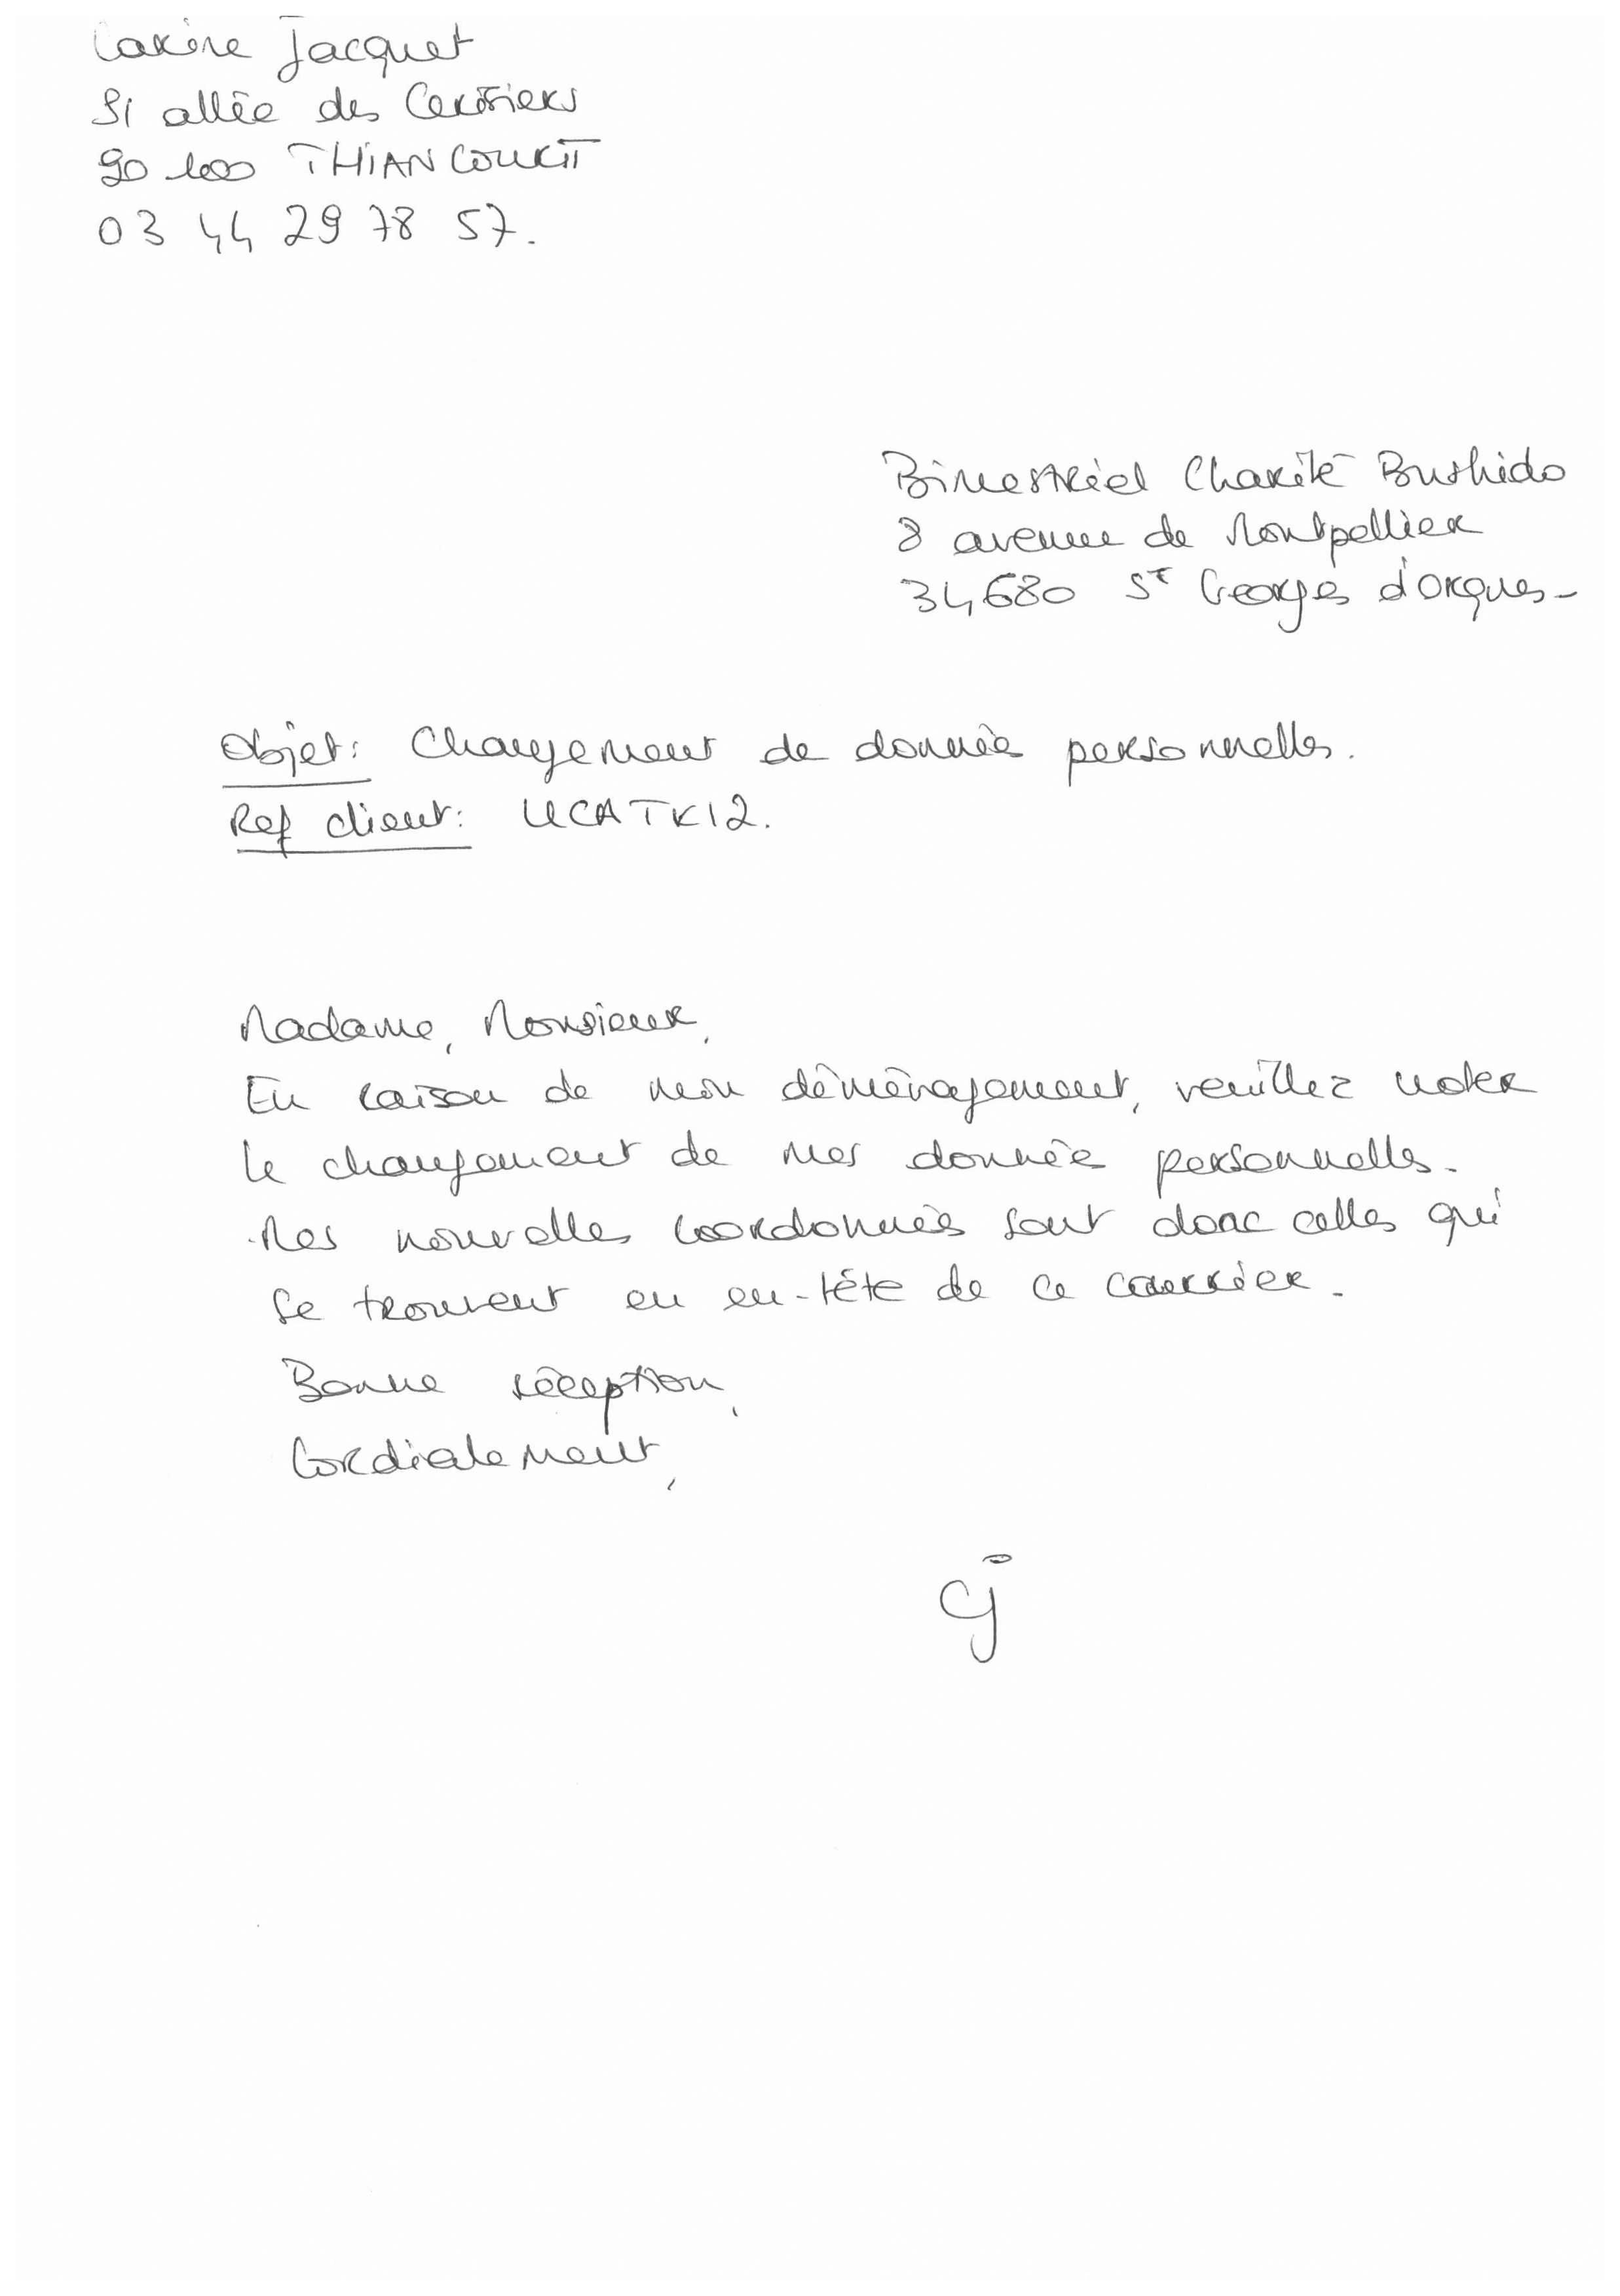 Carine Jacquet
51 allée des Cerisiers
90 100 THIANCOURT
03 44 29 78 57.
Bimestriel Charité Bushido
8 avenue de Montpellier
34680 St Georges d'orques-
Objet: Changement de données personnelles.
Ref client: UCATK12.
Madame, Monsieur,
En raison de mon déménagement, veuillez noter
le changement de mes données personnelles.
Mes nouvelles coordonnées sont donc celles qui
se trouvent en en-tête de ce courrier.
Bonne réception,
Cordialement,
CJ